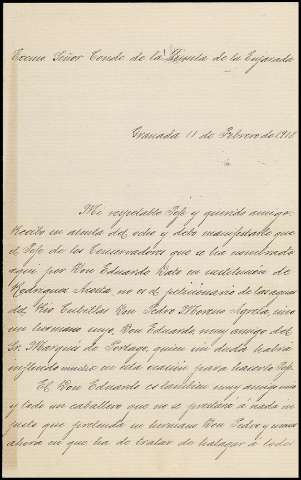 Excmo Señor Conde de la Quinta de la Enjarada
Granada 11 de Febrero de 1918
Mi respetable Jefe y querido amigo:
Recibo su atenta del ocho y debo manifestarle que
el Jefe de los Conservadores que se ha nombrado
aquí por Don Eduardo Dato en sustitución de
Rodriguez Acosta, no es el peticionario de las aguas
del Rio Cubillas Don Pedro Moreno Agrela, sino
un hermano suyo, Don Eduardo, muy amigo del
Sr. Marqués de Portago, quien sin duda habrá
influido mucho en esta ocasión para hacerlo Jefe.
El Don Eduardo es tambien muy amigo mio
y todo un caballero que no se prestará á nada in-
justo que pretenda su hermano Don Pedro y menos
ahora en que ha de tratar de halagar á todos